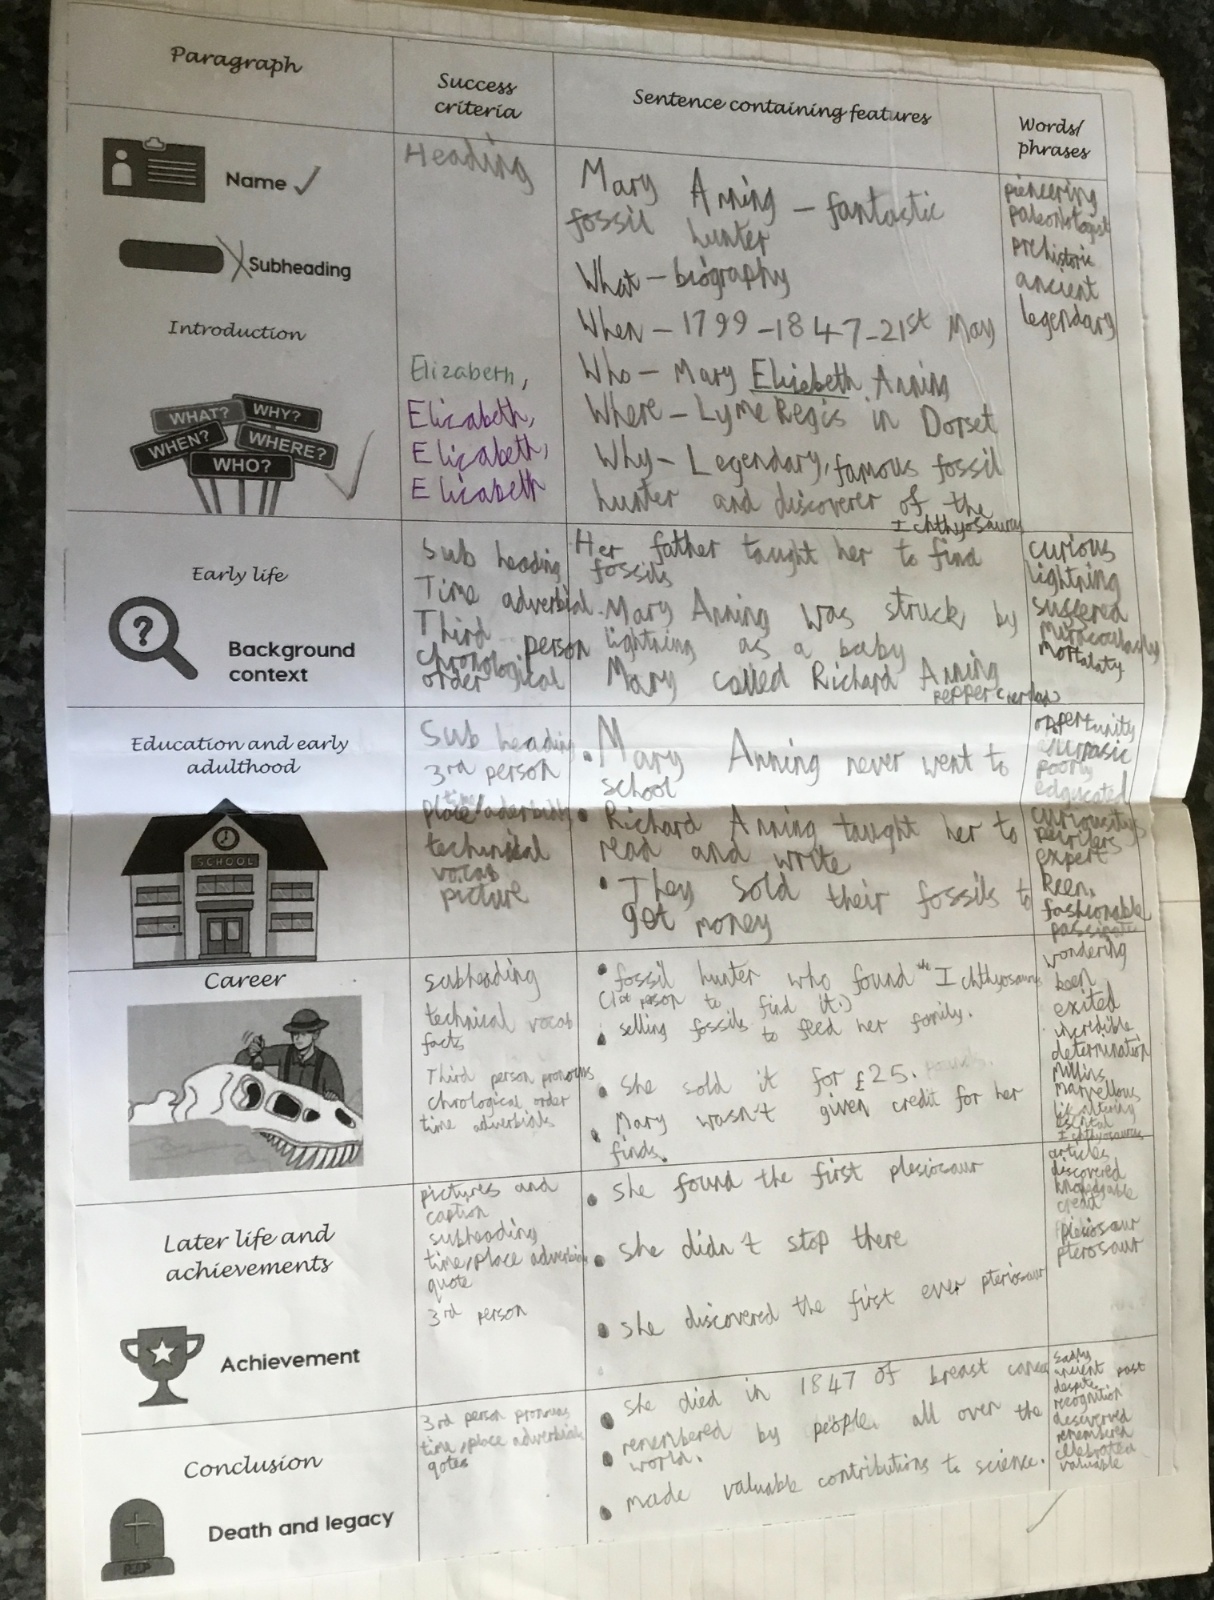 Paragraph
Success
criteria
Sentence containing features
Words/
phrases
Name ✓
Subheading
Heading
Mary Anning – fantastic
fossil hunter
What – biography
When – 1799 – 1847 – 21st May
pieneering
paleontologist
prehistoric
ancient
legendary
Introduction
WHAT?
WHY?
WHEN?
WHERE?
WHO?
Elizabeth,
Elizabeth,
Elizabeth,
Elizabeth
Who – Mary Eliziebeth Anning
Where – Lyme Regis in Dorset
Why – Legendary, famous fossil
hunter and discoverer of the
Ichthyosaurus
Early life
Background
context
Sub heading
Time adverbial
Third person
chronological
order
Her father taught her to find
fossils
Mary Anning was struck by
lightning as a baby
Mary called Richard Anning
pepper
curious
lightning
suffered
miraculously
mortalaty
Education and early
adulthood
SCHOOL
Sub heading
3rd person
time
place/aderbials
technical
vocab
picture
• Mary Anning never went to
school
• Richard Anning taught her to
read and write
• They sold their fossils to
get money
oppertunity
poorly
edgucated
curiousity
expert
keen
fashionable
Career
subheading
technical vocab
facts
Third person pronouns
chrological order
time adverbials
• fossil hunter who found the Ichthyosaurus
(1st person to find it.)
• selling fossils to feed her family.
• she sold it for £25.
• Mary wasn't given credit for her
finds.
wondering
keen
exited
incredible
determination
marvellous
Ichthyosaurus
Later life and
achievements
Achievement
pictures and
caption
subheading
time, place adverbials
quote
3rd person
• she found the first plesiosaur
• she didn't stop there
• she discovered the first ever pteriosaur
articles
discovered
credit
plesiosaur
pterosaur
Conclusion
Death and legacy
RIP
3rd person pronouns
time, place adverbials
qotes
• she died in 1847 of breast cancer
• remembered by people all over the
world.
• made valuable contributions to science.
sadly
past
despite
recognition
deserved
remembered
celebrated
valuable